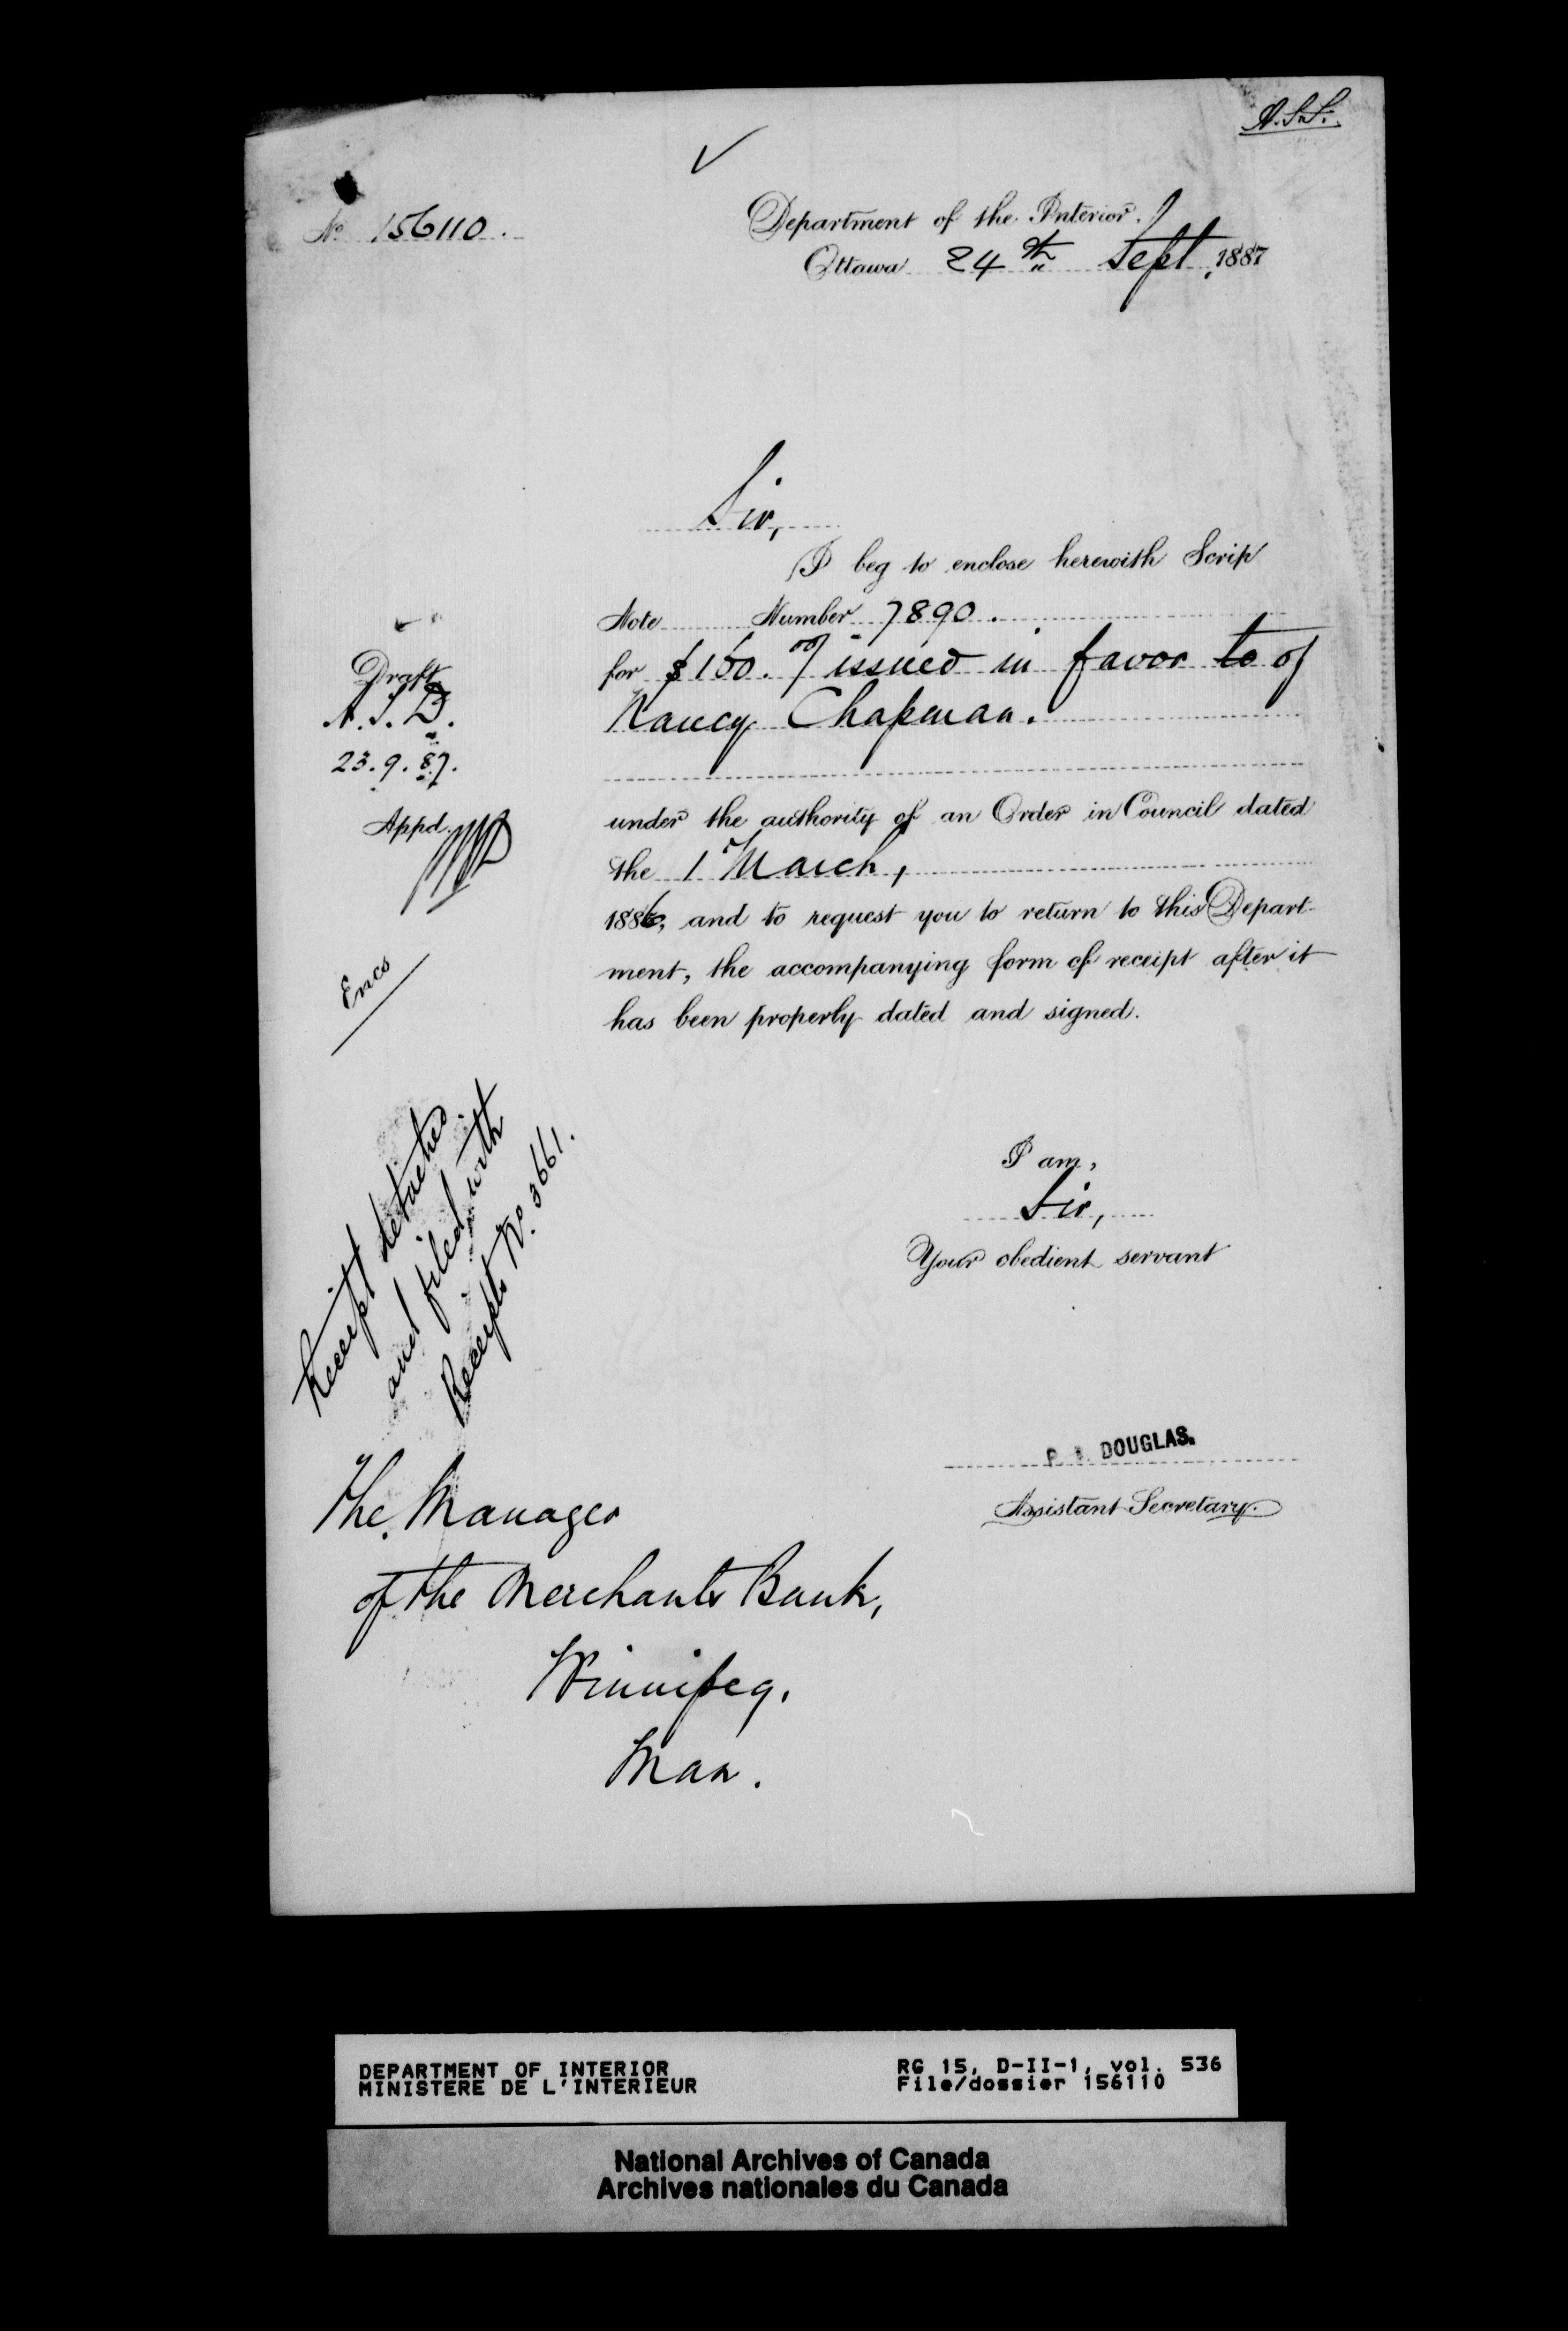 A.S.S.
No 156110.
Department of the Interior.
Ottawa 24th Sept. 1887
Sir,
I beg to enclose herewith Scrip
Note Number 7890.
for $160.00/ issued in favor to of
Nancy Chapman.
under the authority of an Order in Council dated
the 1st March,
1886, and to request you to return to this Depart-
ment, the accompanying form of receipt after it
has been properly dated and signed.
Draft
23.9.87.
Appd.
Encs
Receipt detached
and filed with
Receipts No. 3661.
I am,
Sir,
Your obedient servant
DOUGLAS.
Assistant Secretary.
The Manager
of the Merchants Bank,
Winnipeg.
Man.
DEPARTMENT OF INTERIOR
MINISTERE DE L'INTERIEUR
RG 15, D-II-1, vol. 536
File/dossier 156110
National Archives of Canada
Archives nationales du Canada